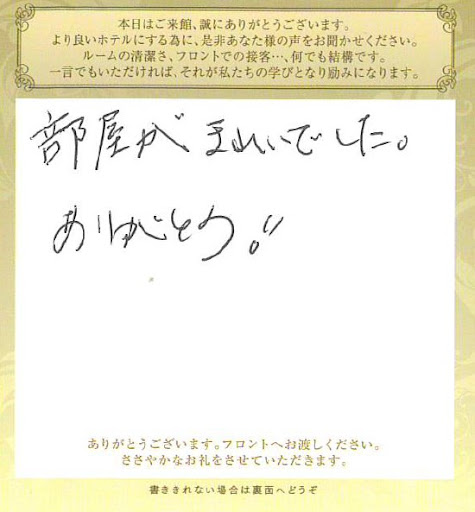 本日はご来館、誠にありがとうございます。
より良いホテルにする為に、是非あなた様の声をお聞かせください。
ルームの清潔さ、フロントでの接客…、何でも結構です。
一言でもいただければ、それが私たちの学びとなり励みになります。
部屋がきれいでした。
ありがとう!!
ありがとうございます。フロントへお渡しください。
ささやかなお礼をさせていただきます。
書ききれない場合は裏面へどうぞ